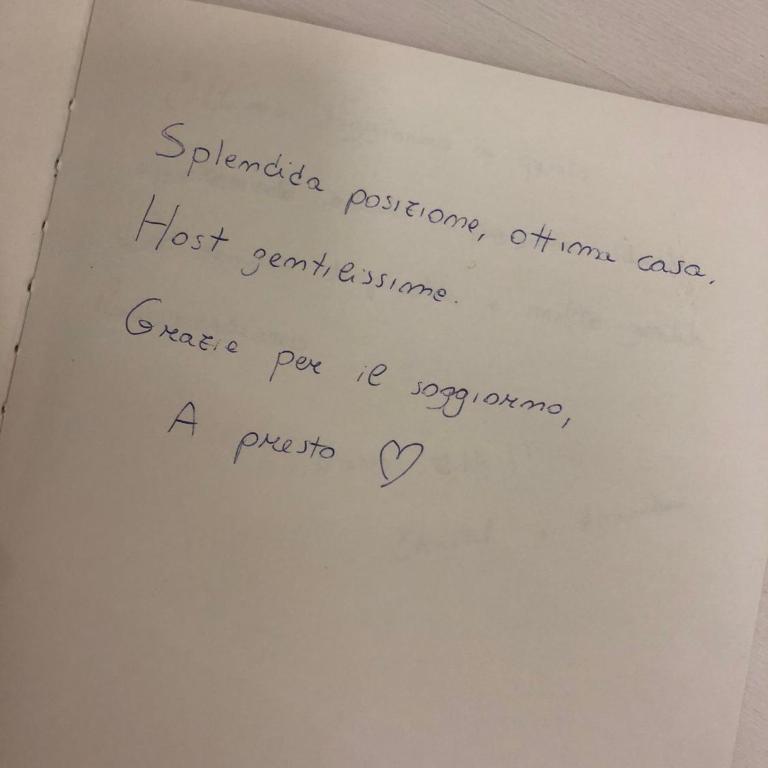 Splendida posizione, ottima casa.
Host gentilissime.
Grazie per il soggiorno,
A presto ♡